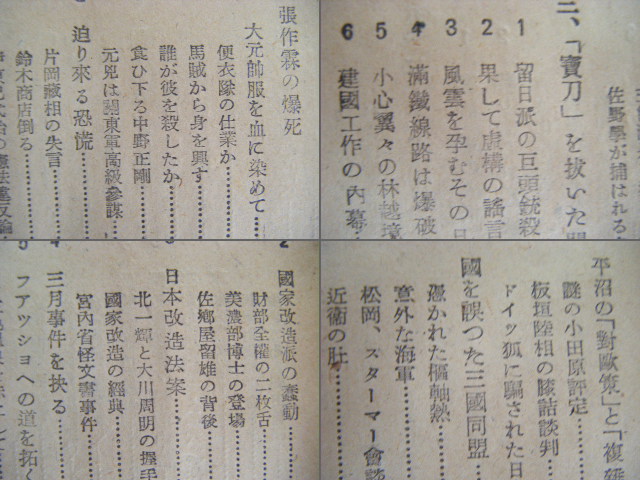 張作霖の爆死
大元帥服を血に染めて
便衣隊の仕業か
馬賊から身を興す
誰が彼を殺したか
食ひ下る中野正剛
元兇は關東軍高級參謀
迫り來る恐慌
片岡藏相の失言
鈴木商店倒る
佐野學が捕はれる
二、「寶刀」を拔いた
1 留日派の巨頭銃殺
2 果して虛構の謠言
3 風雲を孕むその日
4 滿鐵線路は爆破
5 小心翼々の林越境
6 建國工作の內幕
2 國家改造派の蠢動
財部全權の二枚舌
美濃部博士の登場
佐鄕屋留雄の背後
3 日本改造法案
北一輝と大川周明の握手
國家改造の經典
宮內省怪文書事件
4 三月事件を抉る
5 フアツショへの道を拓く
平沼の「對歐策」と「複雜
謎の小田原評定
板垣陸相の膝詰談判
ドイツ狐に騙された日
國を誤つた三國同盟
憑かれた樞軸熱
意外な海軍
松岡、スターマー會談
近衞の肚